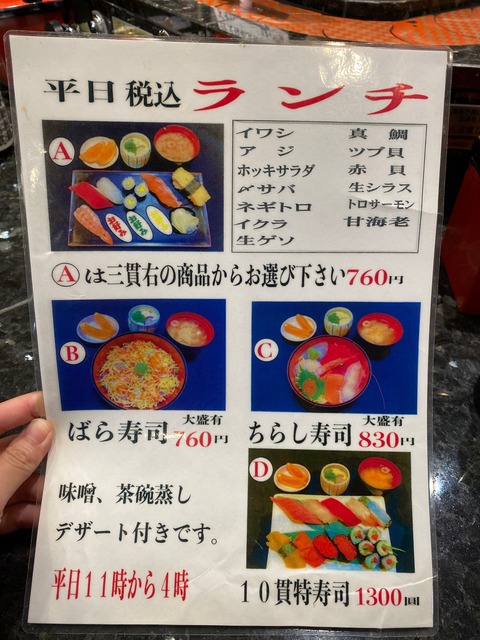 平日 税込 ランチ
A
イワシ 真鯛
アジ ツブ貝
ホッキサラダ 赤貝
〆サバ 生シラス
ネギトロ トロサーモン
イクラ 甘海老
生ゲソ
Aは三貫右の商品からお選び下さい760円
B
C
大盛有
ばら寿司 760円
大盛有
ちらし寿司 830円
D
味噌、茶碗蒸し
デザート付きです。
平日11時から4時
10貫特寿司 1300円